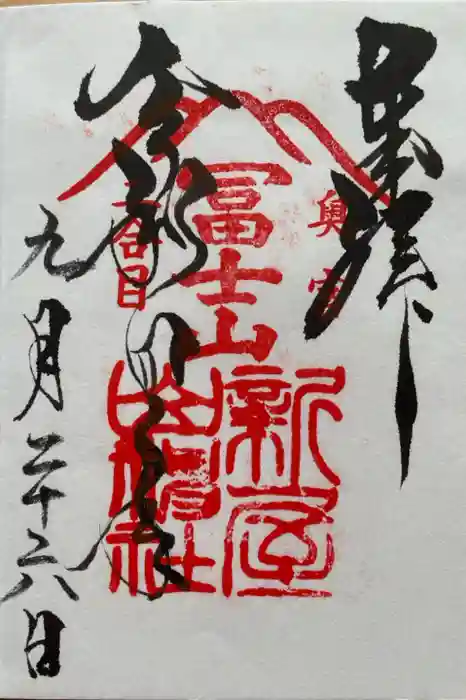 奉拝
奥宮
冨士山
二合目
新屋
山神社
令和四年
九月二十六日